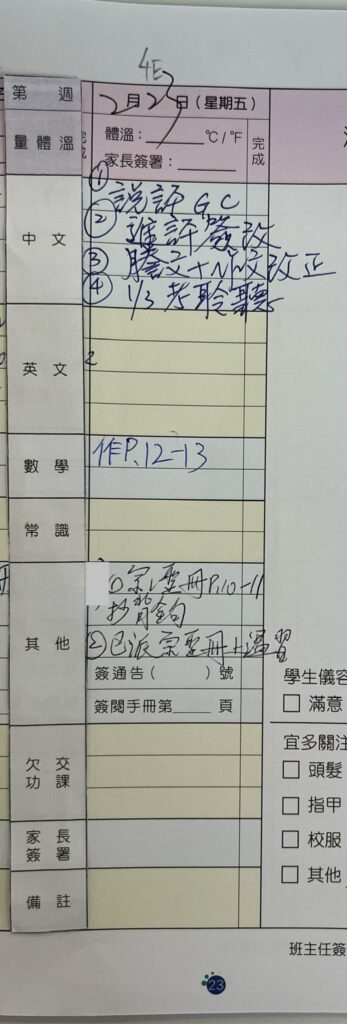 4E
第 週
2月23日(星期五)
量體溫
體溫:______℃/℉
家長簽署:
完成
中文
① 說話 GC
② 進評簽改
③ 謄文+N改改正
④ 1/3 考聆聽
英文
數學
作P.12-13
常識
其他
① 宗:聖冊P.10-11
抄背金句
② 已派宗聖冊+溫習
簽通告( )號
簽閱手冊第____頁
欠交功課
家長簽署
備註
學生儀容
□ 滿意
宜多關注
□ 頭髮
□ 指甲
□ 校服
□ 其他
班主任簽
23